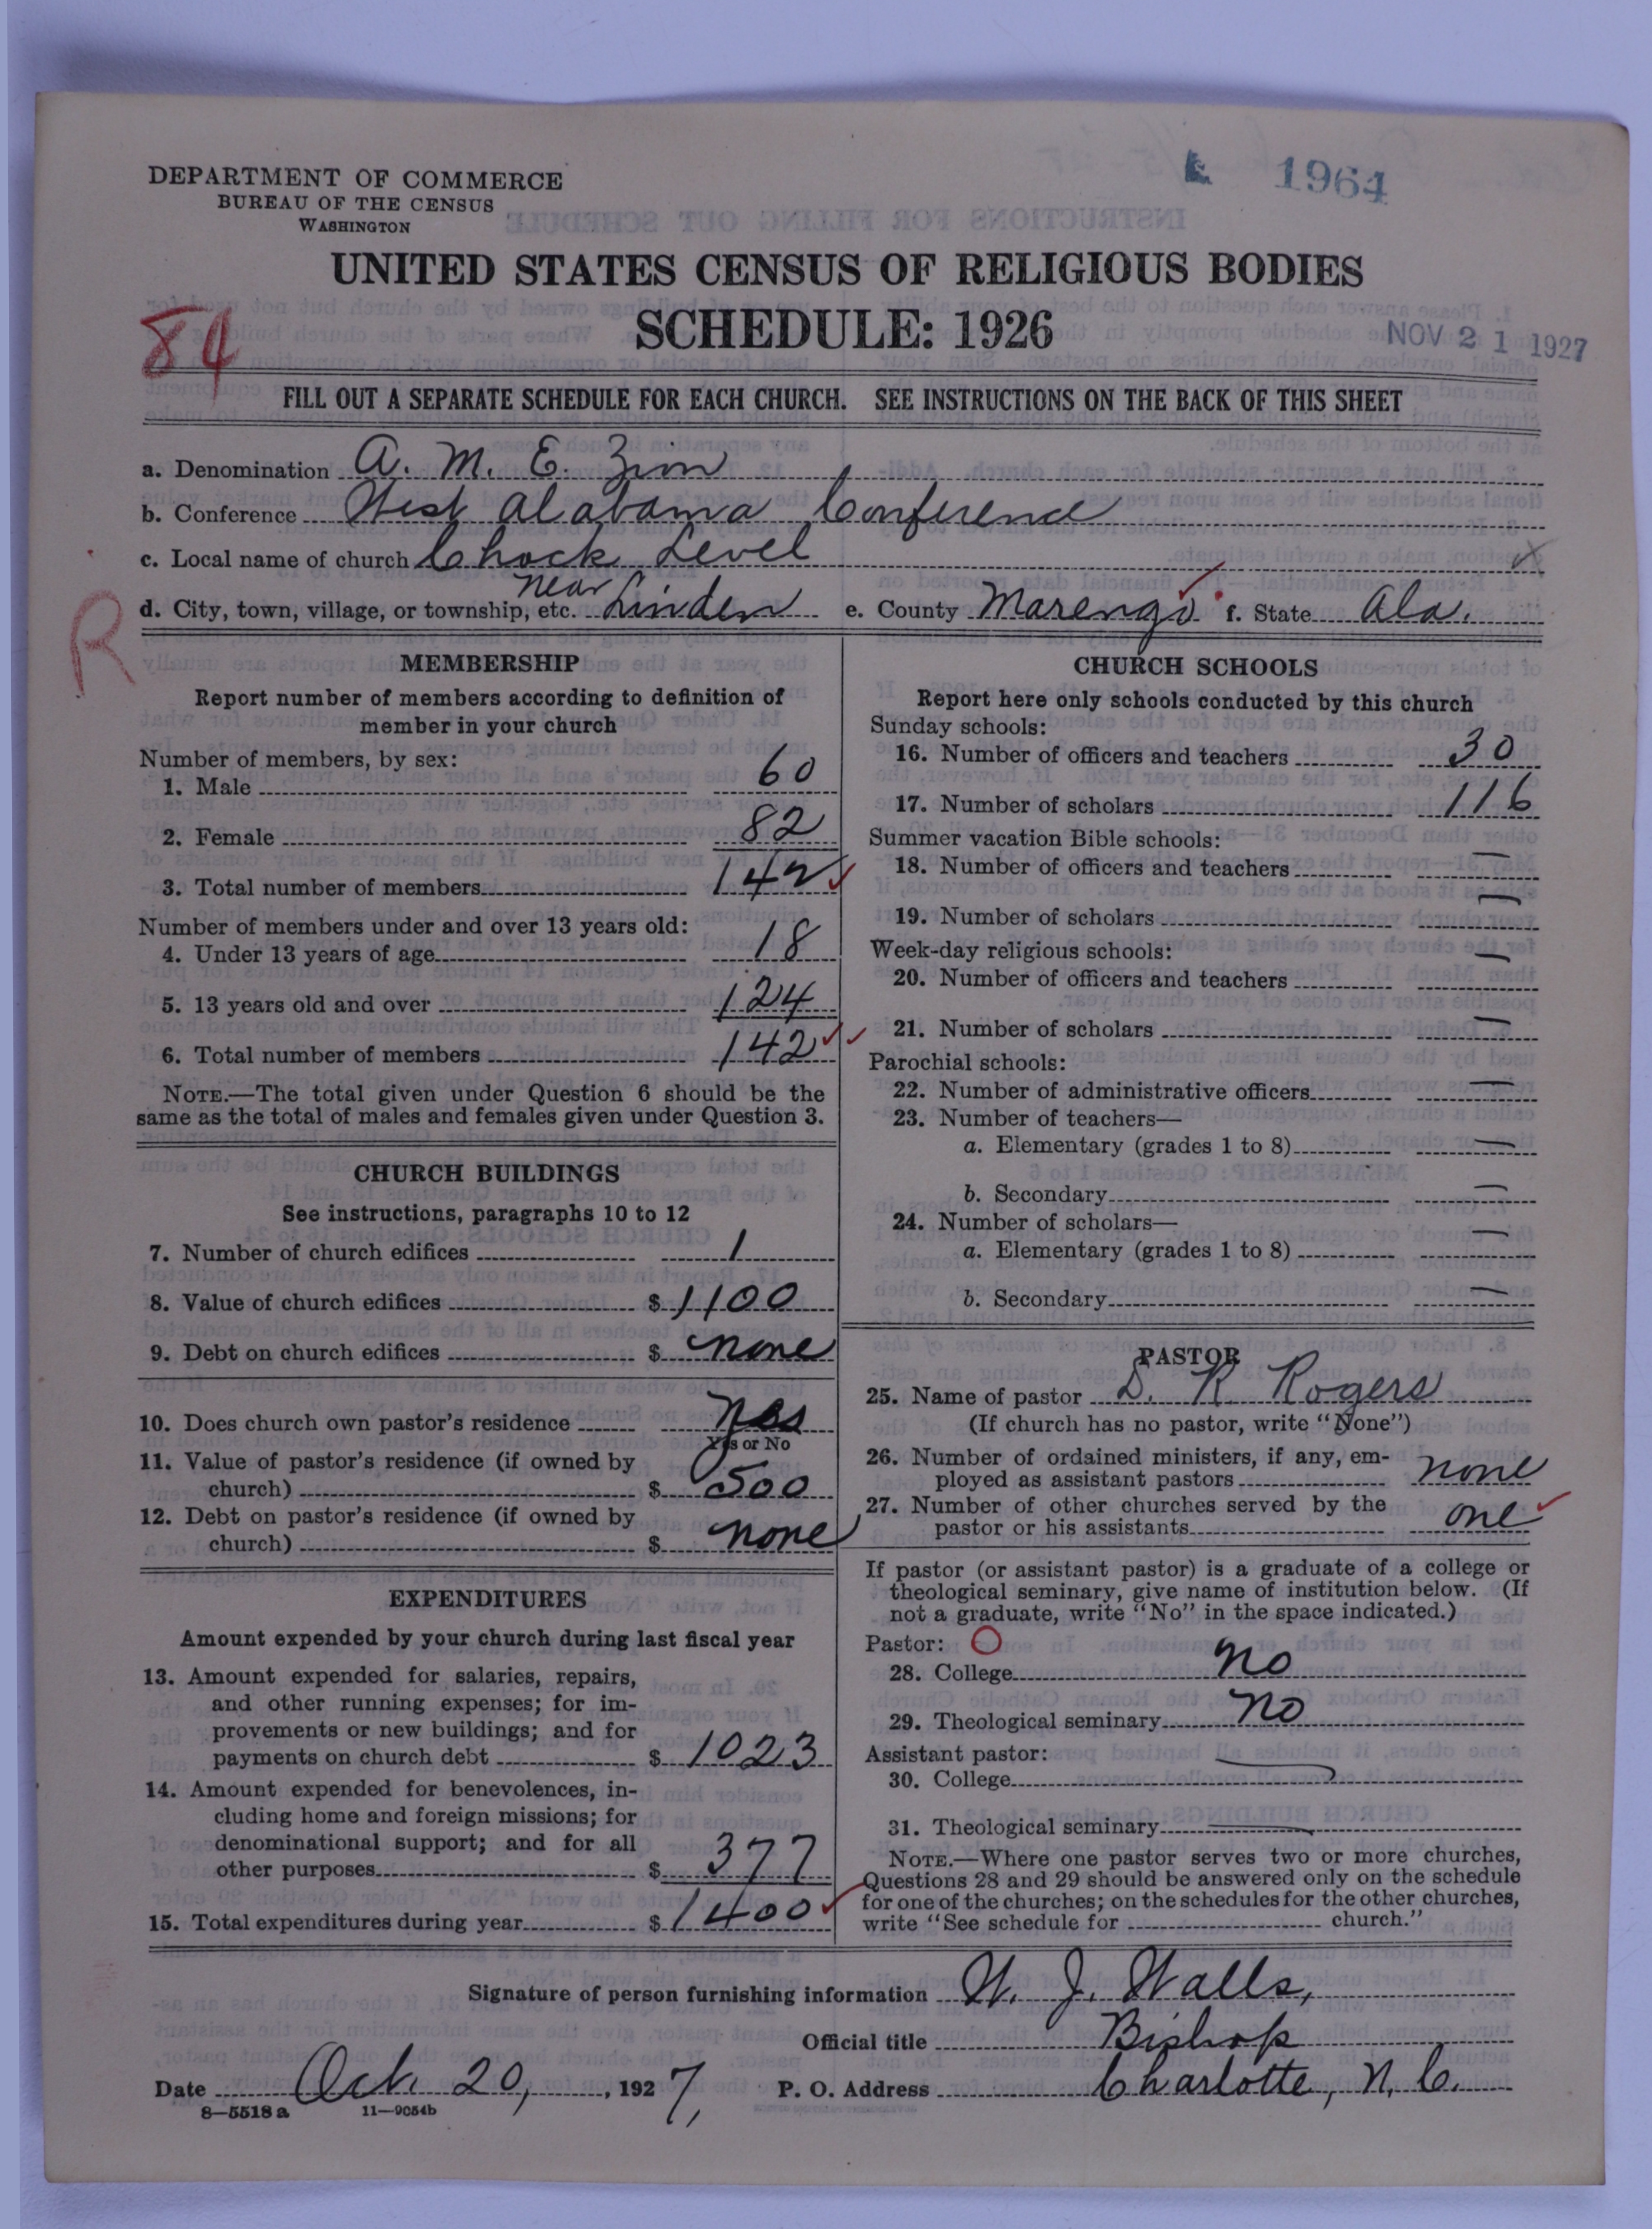 DEPARTMENT OF COMMERCE
BUREAU OF THE CENSUS
WASHINGTON
1964
UNITED STATES CENSUS OF RELIGIOUS BODIES
SCHEDULE: 1926
NOV 21 1927
84
FILL OUT A SEPARATE SCHEDULE FOR EACH CHURCH. SEE INSTRUCTIONS ON THE BACK OF THIS SHEET
a. Denomination A. M. E. Zion
b. Conference West Alabama Conference
c. Local name of church Chock Level
d. City, town, village, or township, etc. near Linden e. County Marengo f. State Ala.
R
MEMBERSHIP
Report number of members according to definition of
member in your church
Number of members, by sex:
1. Male 60
2. Female 82
3. Total number of members 142
Number of members under and over 13 years old:
4. Under 13 years of age 18
5. 13 years old and over 124
6. Total number of members 142
NOTE.—The total given under Question 6 should be the
same as the total of males and females given under Question 3.
CHURCH BUILDINGS
See instructions, paragraphs 10 to 12
7. Number of church edifices 1
8. Value of church edifices $ 1100
9. Debt on church edifices $ none
10. Does church own pastor's residence Yes
Yes or No
11. Value of pastor's residence (if owned by
church) $ 500
12. Debt on pastor's residence (if owned by
church) $ none
EXPENDITURES
Amount expended by your church during last fiscal year
13. Amount expended for salaries, repairs,
and other running expenses; for im-
provements or new buildings; and for
payments on church debt $ 1023
14. Amount expended for benevolences, in-
cluding home and foreign missions; for
denominational support; and for all
other purposes $ 377
15. Total expenditures during year $ 1400
CHURCH SCHOOLS
Report here only schools conducted by this church
Sunday schools:
16. Number of officers and teachers 30
17. Number of scholars 116
Summer vacation Bible schools:
18. Number of officers and teachers —
19. Number of scholars —
Week-day religious schools:
20. Number of officers and teachers —
21. Number of scholars —
Parochial schools:
22. Number of administrative officers —
23. Number of teachers—
a. Elementary (grades 1 to 8) —
b. Secondary —
24. Number of scholars—
a. Elementary (grades 1 to 8) —
b. Secondary —
PASTOR
25. Name of pastor D. R. Rogers
(If church has no pastor, write "None")
26. Number of ordained ministers, if any, em-
ployed as assistant pastors none
27. Number of other churches served by the
pastor or his assistants one
If pastor (or assistant pastor) is a graduate of a college or
theological seminary, give name of institution below. (If
not a graduate, write "No" in the space indicated.)
Pastor:
28. College no
29. Theological seminary no
Assistant pastor:
30. College —
31. Theological seminary —
NOTE.—Where one pastor serves two or more churches,
Questions 28 and 29 should be answered only on the schedule
for one of the churches; on the schedules for the other churches,
write "See schedule for church."
Signature of person furnishing information W. J. Walls,
Official title Bishop
Date Oct. 20, 1927, P. O. Address Charlotte, N. C.
8—5518 a 11—9054b